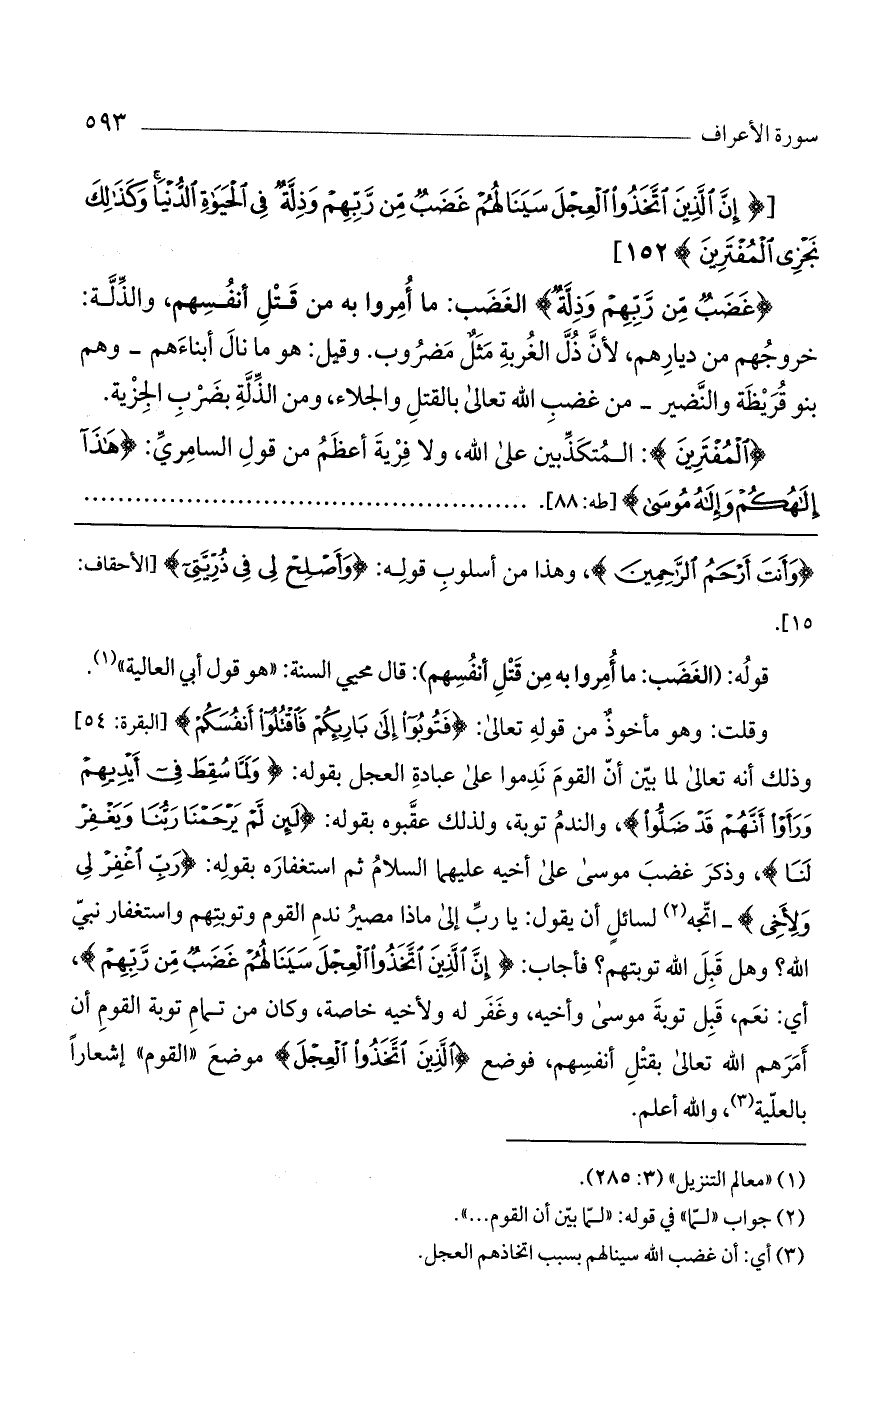 سورة الأعراف ٥٩٣
[﴿إِنَّ ٱلَّذِينَ ٱتَّخَذُوا۟ ٱلْعِجْلَ سَيَنَالُهُمْ غَضَبٌ مِّن رَّبِّهِمْ وَذِلَّةٌ فِى ٱلْحَيَوٰةِ ٱلدُّنْيَا ۚ وَكَذَٰلِكَ
نَجْزِى ٱلْمُفْتَرِينَ﴾ ١٥٢]
﴿غَضَبٌ مِّن رَّبِّهِمْ وَذِلَّةٌ﴾ الغَضَب: ما أُمِروا به من قَتْلِ أنفُسِهم، والذِّلَّة:
خروجُهم من ديارِهم، لأنَّ ذُلَّ الغُربةِ مَثَلٌ مَضرُوب. وقيل: هو ما نالَ أبناءَهم - وهم
بنو قُرَيْظَة والنَّضير - من غضبِ الله تعالىٰ بالقتلِ والجلاء، ومن الذِّلَّةِ بضَرْبِ الجِزْية.
﴿ٱلْمُفْتَرِينَ﴾: المُتكذِّبين علىٰ الله، ولا فِرْيةَ أعظَمُ من قولِ السامِريِّ: ﴿هَٰذَآ
إِلَٰهُكُمْ وَإِلَٰهُ مُوسَىٰ﴾ [طه: ٨٨]. ..................................................
﴿وَأَنتَ أَرْحَمُ ٱلرَّٰحِمِينَ﴾، وهذا من أسلوبِ قولِه: ﴿وَأَصْلِحْ لِى فِى ذُرِّيَّتِىٓ﴾ [الأحقاف:
١٥].
قولُه: (الغَضَب: ما أُمِروا به مِن قَتْلِ أنفُسِهم): قال محيي السنة: «هو قول أبي العالية»(١).
وقلت: وهو مأخوذٌ من قولهِ تعالىٰ: ﴿فَتُوبُوٓا۟ إِلَىٰ بَارِئِكُمْ فَٱقْتُلُوٓا۟ أَنفُسَكُمْ﴾ [البقرة: ٥٤]
وذلك أنه تعالىٰ لما بيّن أنّ القومَ نَدِموا علىٰ عبادةِ العجل بقوله: ﴿وَلَمَّا سُقِطَ فِىٓ أَيْدِيهِمْ
وَرَأَوْا۟ أَنَّهُمْ قَدْ ضَلُّوا۟﴾، والندمُ توبة، ولذلك عقَّبوه بقوله: ﴿لَئِن لَّمْ يَرْحَمْنَا رَبُّنَا وَيَغْفِرْ
لَنَا﴾، وذكرَ غضبَ موسىٰ علىٰ أخيه عليهما السلامُ ثم استغفارَه بقولِه: ﴿رَبِّ ٱغْفِرْ لِى
وَلِأَخِى﴾ - اتّجه(٢) لسائلٍ أن يقول: يا ربِّ إلىٰ ماذا مصيرُ ندمِ القوم وتوبتِهم واستغفار نبيّ
الله؟ وهل قَبِلَ الله توبتهم؟ فأجاب: ﴿إِنَّ ٱلَّذِينَ ٱتَّخَذُوا۟ ٱلْعِجْلَ سَيَنَالُهُمْ غَضَبٌ مِّن رَّبِّهِمْ﴾،
أي: نعَم، قَبِل توبةَ موسىٰ وأخيه، وغَفَر له ولأخيه خاصة، وكان من تمامِ توبة القومِ أن
أَمَرَهم الله تعالىٰ بقتْلِ أنفسِهم، فوضع ﴿ٱلَّذِينَ ٱتَّخَذُوا۟ ٱلْعِجْلَ﴾ موضعَ «القوم» إشعاراً
بالعلّية(٣)، والله أعلم.
(١) «معالم التنزيل» (٣: ٢٨٥).
(٢) جواب «لمّا» في قوله: «لمّا بيّن أن القوم...».
(٣) أي: أن غضب الله سينالهم بسبب اتخاذهم العجل.